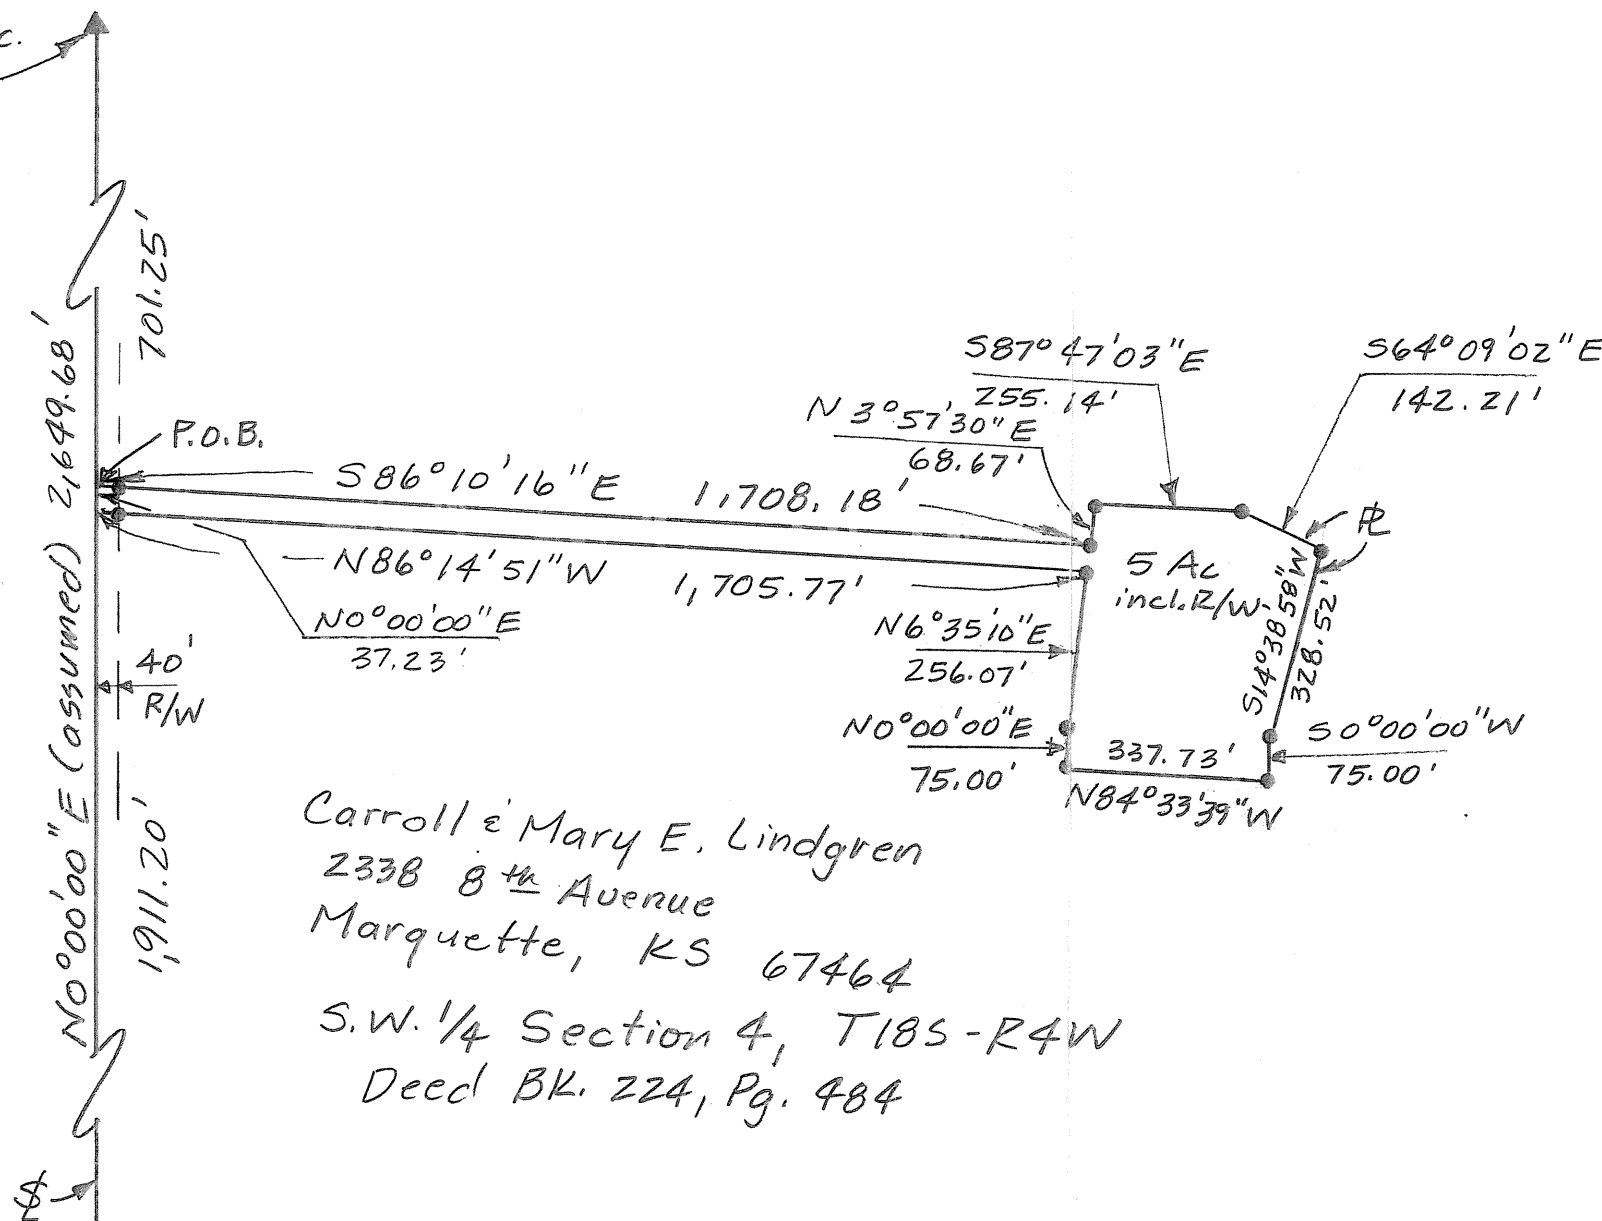 c.
701.25'
N0°00'00"E (assumed) 2,649.68'
P.O.B.
S86°10'16"E 1,708.18'
N86°14'51"W 1,705.77'
N0°00'00"E
37.23'
40'
R/W
1,911.20'
S87°47'03"E
255.14'
N 3°57'30"E
68.67'
S64°09'02"E
142.21'
PL
5 Ac
incl. R/W
S14°38'58"W
328.52'
N6°35'10"E
256.07'
N0°00'00"E
75.00'
S0°00'00"W
75.00'
337.73'
N84°33'39"W
Carroll & Mary E. Lindgren
2338 8th Avenue
Marquette, KS 67464
S.W. 1/4 Section 4, T18S-R4W
Deed BK. 224, Pg. 484